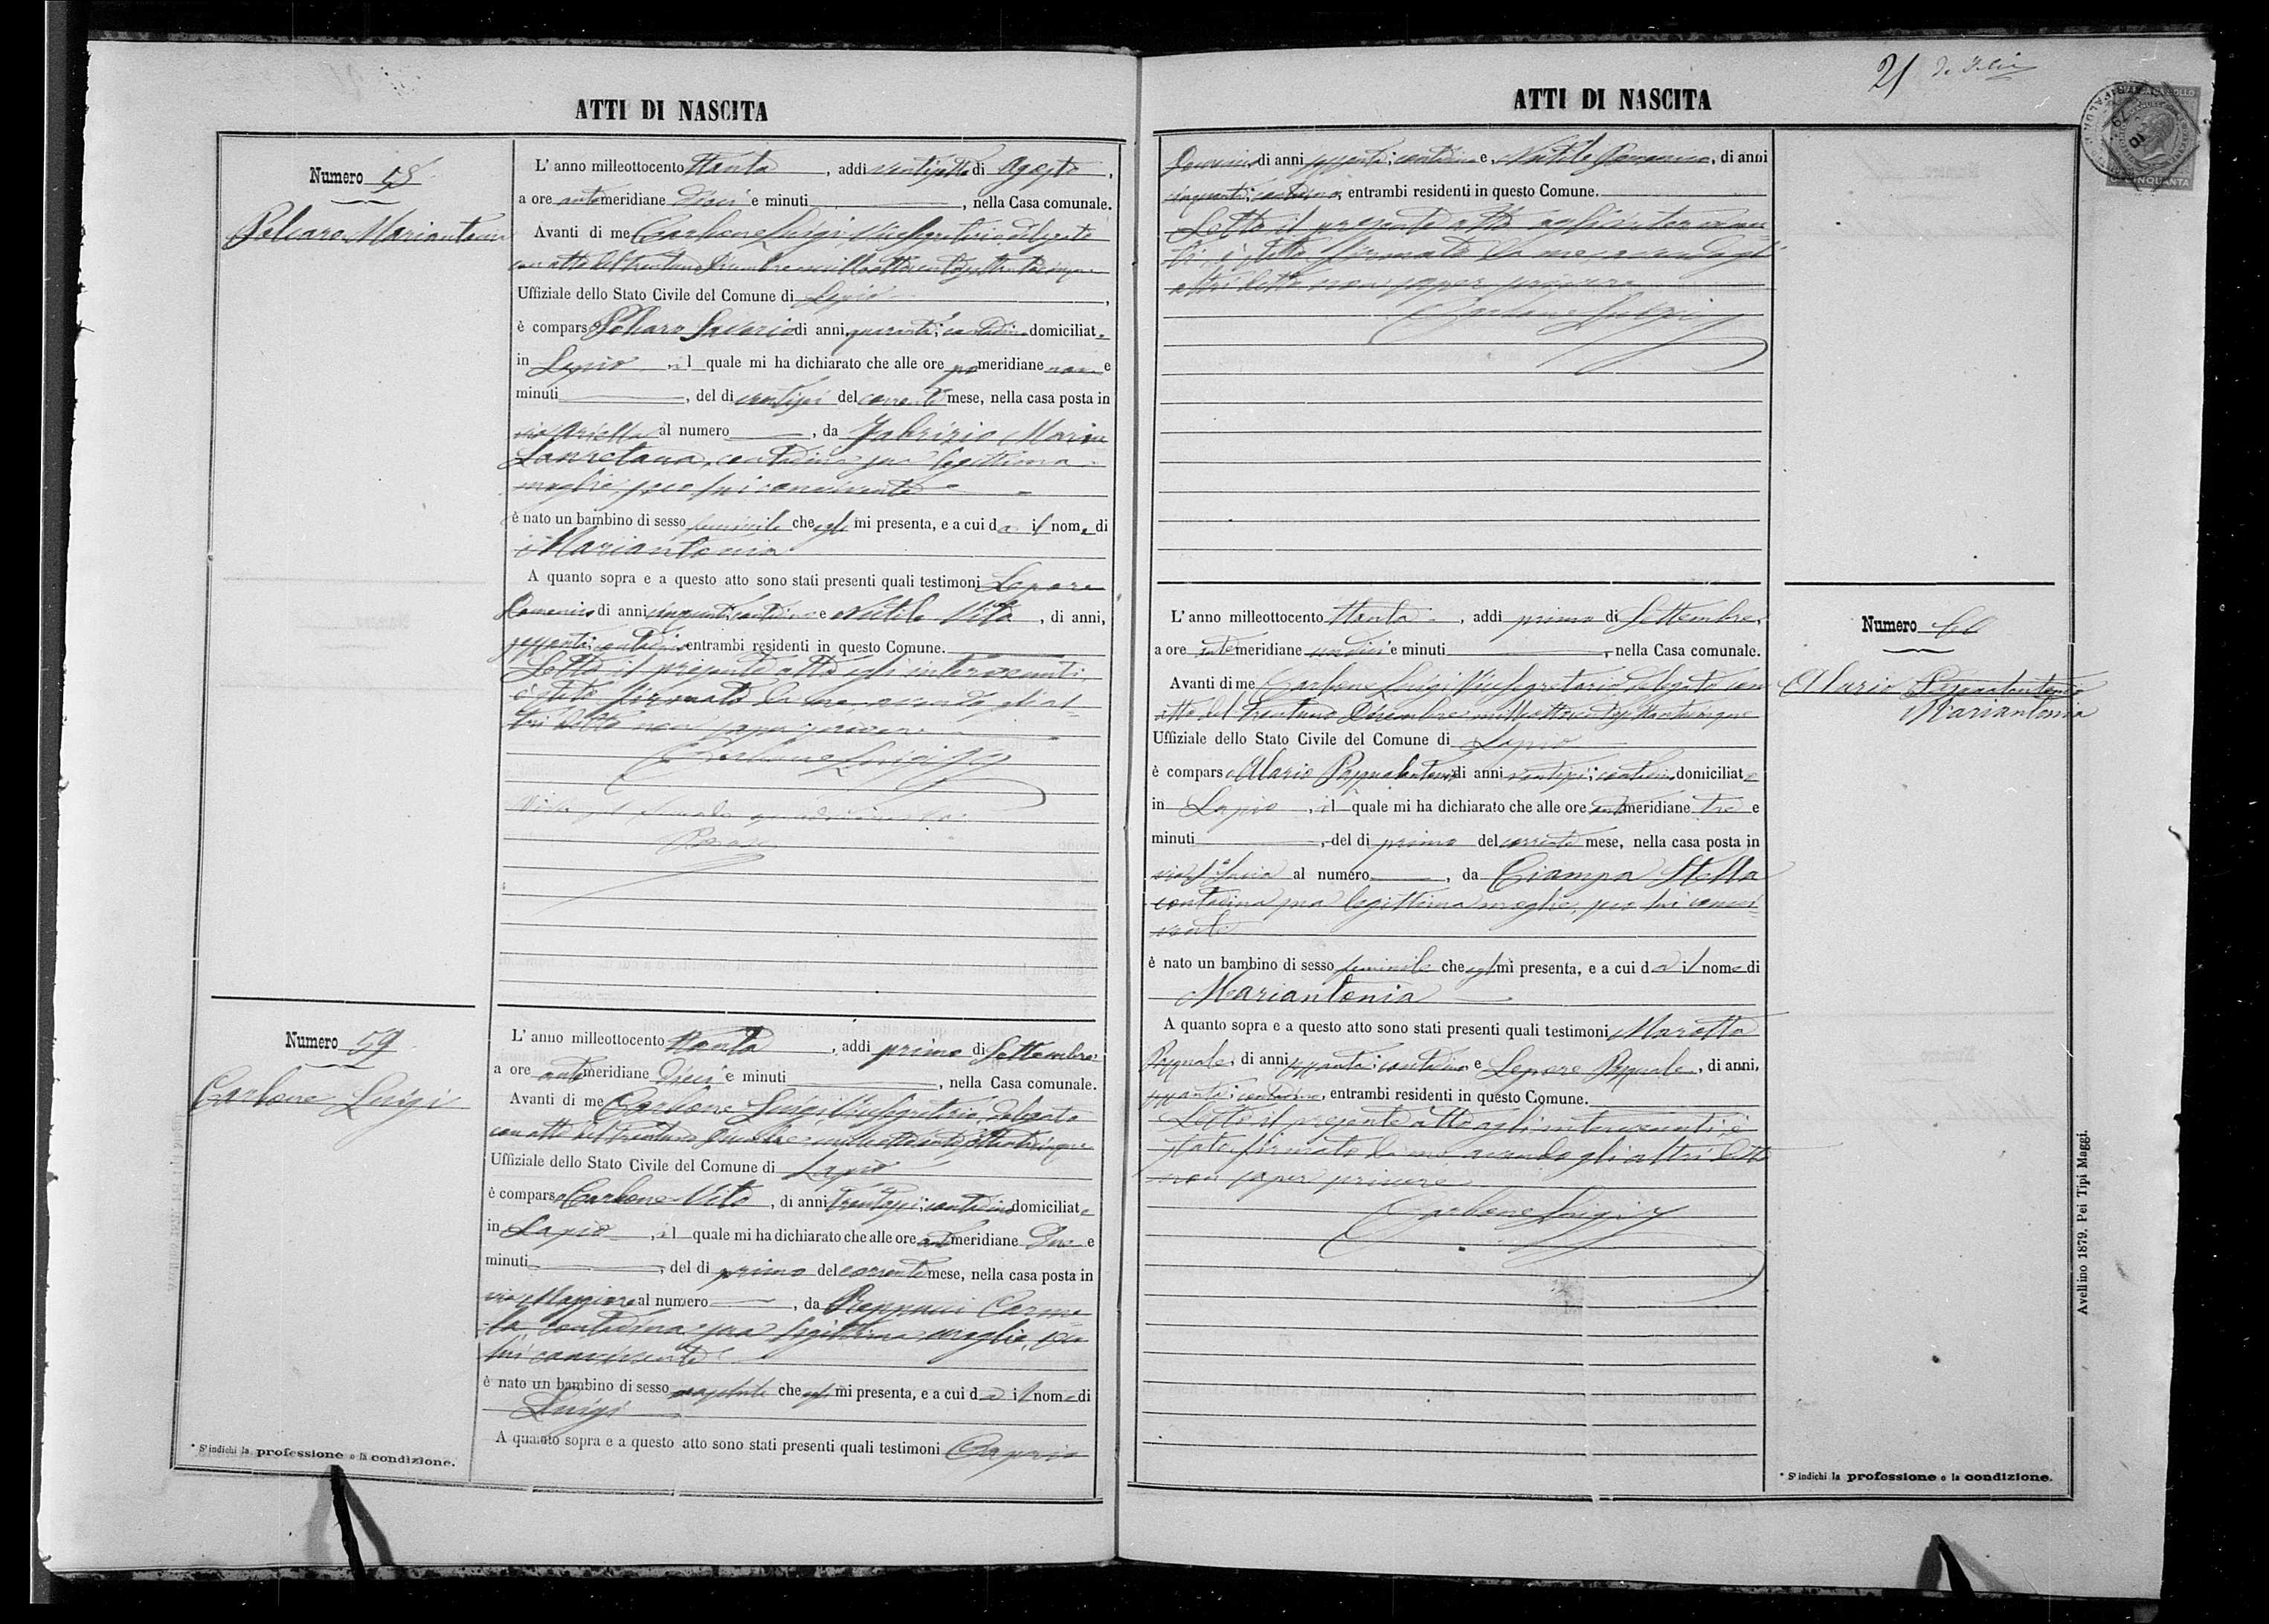 ATTI DI NASCITA
Numero 58
Polcaro Mariantonia
L' anno milleottocento ottanta, addi ventisette di Agosto,
a ore antemeridiane dieci e minuti, nella Casa comunale.
Avanti di me Carbone Luigi, Vicesegretario delegato
con atto del trentuno Dicembre milleottocentosettantacinque
Uffiziale dello Stato Civile del Comune di Lapio,
è comparso Polcaro Saverio di anni quaranta; contadino domiciliato
in Lapio, il quale mi ha dichiarato che alle ore pomeridiane nove e
minuti, del di ventisei del corrente mese, nella casa posta in
via Ariella al numero, da Fabrizio Maria
Lauretana, contadina sua legittima
moglie, seco lui convivente
è nato un bambino di sesso feminile che egli mi presenta, e a cui da il nome di
Mariantonia
A quanto sopra e a questo atto sono stati presenti quali testimoni Lepore
Domenico di anni cinquanta; contadino e Nutile Vito, di anni,
sessanta; contadino entrambi residenti in questo Comune.
Letto il presente atto agli intervenuti,
è stato firmato da me, avendo gli al-
tri detto non saper scrivere.
Carbone Luigi
Numero 59
Carbone Luigi
L' anno milleottocento ottanta, addi primo di Settembre,
a ore antemeridiane dieci e minuti, nella Casa comunale.
Avanti di me Carbone Luigi, Vicesegretario delegato
con atto del trentuno Dicembre milleottocentosettantacinque
Uffiziale dello Stato Civile del Comune di Lapio
è comparso Carbone Vito, di anni trentasei; contadino domiciliato
in Lapio, il quale mi ha dichiarato che alle ore antemeridiane due e
minuti, del di primo del corrente mese, nella casa posta in
via Maggiore al numero, da Carme-
la, contadina sua legittima moglie, seco
lui convivente
è nato un bambino di sesso maschile che egli mi presenta, e a cui da il nome di
Luigi
A quanto sopra e a questo atto sono stati presenti quali testimoni Caprio
* S'indichi la professione o la condizione.
21
ATTI DI NASCITA
Domenico di anni sessanta; contadino e Nutile, di anni
cinquanta; contadino, entrambi residenti in questo Comune.
Letto il presente atto agli intervenu-
ti, è stato firmato da me, avendo gli
altri detto non saper scrivere
Carbone Luigi
Numero 60
Alario Pasqualantonio
Mariantonia
L' anno milleottocento ottanta, addi primo di Settembre,
a ore antemeridiane undici e minuti, nella Casa comunale.
Avanti di me Carbone Luigi Vicesegretario, delegato con
atto del trentuno Dicembre milleottocentosettantacinque
Uffiziale dello Stato Civile del Comune di Lapio
è comparso Alario Pasqualantonio di anni ventisei; contadino domiciliato
in Lapio, il quale mi ha dichiarato che alle ore antemeridiane tre e
minuti, del di primo del corrente mese, nella casa posta in
via al numero, da Ciampa Stella
contadina sua legittima moglie, seco lui convi-
vente
è nato un bambino di sesso feminile che egli mi presenta, e a cui da il nome di
Mariantonia
A quanto sopra e a questo atto sono stati presenti quali testimoni Marotta
Pasquale, di anni sessanta; contadino e Lepore Pasquale, di anni,
sessanta; contadino, entrambi residenti in questo Comune.
Letto il presente atto agli intervenuti, è
stato firmato da me, avendo gli altri detto
non saper scrivere
Carbone Luigi
* S'indichi la professione o la condizione.
Avellino 1879. Pei Tipi Maggi.